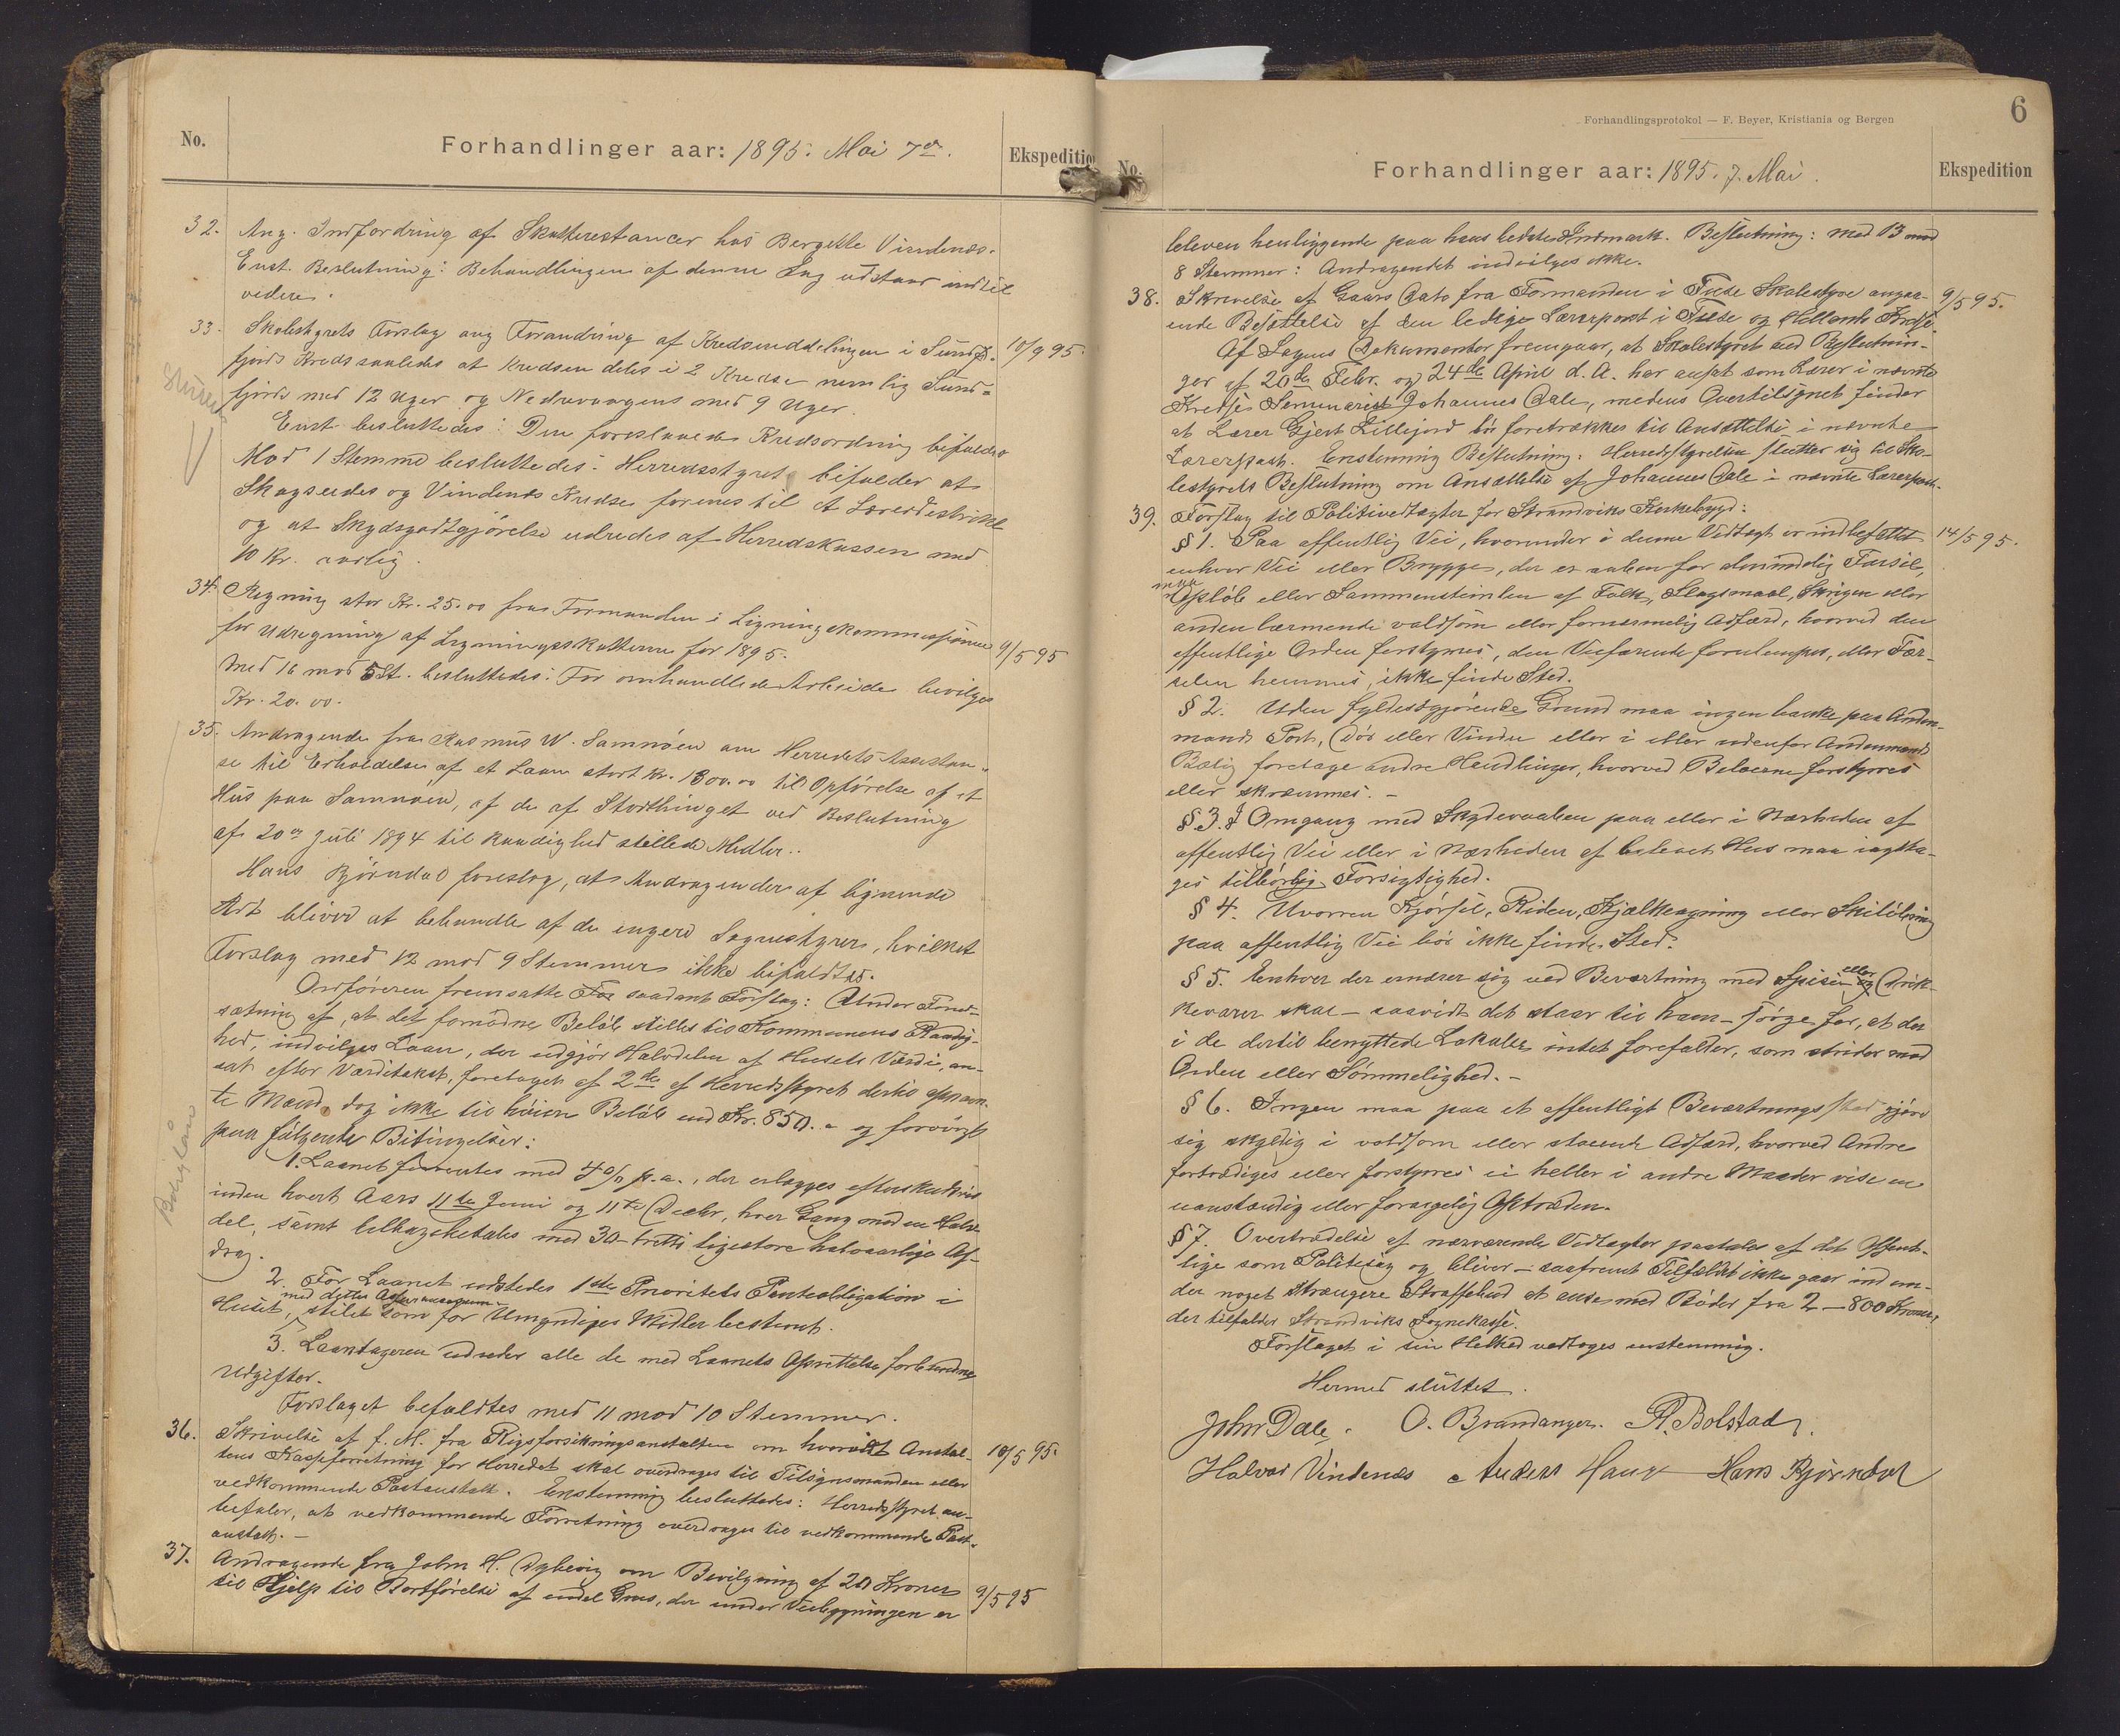 No.
Forhandlinger aar: 1895. Mai 7de.
Ekspedition
32. Ang. Indfordring af Skatterestancer hos Bergette Vindenæs.
Enst. Beslutning: Behandlingen af denne Sag udstaar indtil
videre.
33. Skolestyrets Forslag ang Forandring af Kredsinddelingen i Sund-
fjords Kreds saaledes at Kredsen deles i 2 Kredse nemlig Sund- 10/9 95.
fjords med 12 Uger og Nedrevaagens med 9 Uger.
Enst. besluttedes: Den foreslaaede Kredsordning bifaldes
Mod 1 Stemme besluttedes: Herredsstyret bifalder at
Skagseides og Vindenæs Kredse forenes til et Lærerdistrikt
og at Skydsgodtgjørelse udredes af Herredskassen med
10 Kr. aarlig.
34. Regning stor Kr. 25.00 fra Formanden i Ligningskommissionen
for Udregning af Ligningsskatterne for 1895. 9/5 95
Med 16 mod 5 St. besluttedes: For omhandlede Arbeide bevilges
Kr. 20.00.
35. Andragende fra Rasmus W. Samnøen om Herredets Assistan-
se til Erholdelse af et Laan stort Kr. 1300.00 til Opførelse af et
Hus paa Samnøen, af de af Storthinget ved Beslutning
af 20de Juli 1894 til Raadighed stillede Midler.
Hans Bjørndal foreslog, at Andragender af lignende
Art bliver at behandle af de engere Sognestyrer, hvilket
Forslag med 12 mod 9 Stemmer ikke bifaldtes.
Ordføreren fremsatte For saadant Forslag: Under Forud-
sætning af, at det fornødne Beløb stilles til Kommunens Raadig-
hed, indvilges Laan, der udgjør Halvdelen af Husets Værdi, an-
sat efter Værditakst, foretaget af 2de af Herredsstyret dertil opnævn-
te Mænd, dog ikke til høiere Beløb end Kr. 850.- og forøvrigt
paa følgende Betingelser:
1. Laanet forrentes med 4 % p.a., der erlægges efterskudsvis
inden hvert Aars 11te Juni og 11te Decbr, hver Gang med en Halv-
del, samt tilbagebetales med 30-tretti ligestore halvaarlige Af-
drag.
2. For Laanet udstedes 1ste Prioritets Panteobligation i
med dettes Assurancesum
Huset, stilet som for Umyndiges Midler bestemt.
3. Laantageren udreder alle de med Laanets Oprettelse forbundne
Udgifter.
Forslaget bifaldtes med 11 mod 10 Stemmer.
36. Skrivelse af f. M. fra Rigsforsikringsanstalten om hvorvidt Anstal- 10/5 95.
tens Kasseforretning for Herredet skal overdrages til Tilsynsmanden eller
vedkommende Postanstalt. Enstemmig besluttedes: Herredsstyret an-
befaler, at vedkommende Forretning overdrages til vedkommende Post-
anstalt. -
37. Andragende fra John H. Dybevig om Bevilgning af 20 Kroner
til Hjelp til Bortførelse af endel Grus, der under Veibygningen er 9/5 95
6
Forhandlingsprotokol — F. Beyer, Kristiania og Bergen
No.
Forhandlinger aar: 1895. 7. Mai.
Ekspedition
bleven henliggende paa hans bedste Indmark. Beslutning: med 13 mod
8 Stemmer: Andragendet indvilges ikke.
38. Skrivelse af Gaars Dato fra Formanden i Fuse Skolestyre angaa- 9/5 95.
ende Besættelse af den ledige Lærerpost i Fuse og Hellands Kredse.
Af Sagens Dokumenter fremgaar, at Skolestyret ved Beslutnin-
ger af 20de Febr. og 24de April d. A. har ansat som Lærer i nævnte
Kredse Seminarist Johannes Dale, medens Overtilsynet finder
at Lærer Gjert Lillefjord bør foretrækkes til Ansættelse i nævnte
Lærerpost. Enstemmig Beslutning: Herredsstyrelsen slutter sig til Sko-
lestyrets Beslutning om Ansættelse af Johannes Dale i nævnte Lærerpost.
39. Forslag til Politivedtægter for Strandviks Kirkebygd:
§ 1. Paa offentlig Vei, hvorunder i denne Vedtægt er indbefattet 14/5 95.
enhver Vei eller Brygge, der er aaben for almindelig Færsel,
maa
Opløb eller Sammenstimlen af Folk, Slagsmaal, Skrigen eller
anden larmende voldsom eller fornærmelig Adfærd, hvorved den
offentlige Orden forstyrres, den Veifarende forulempes, eller Fær-
selen hemmes, ikke finde Sted.
§ 2. Uden fyldestgjørende Grund maa ingen banke paa Anden-
mands Port, Dør eller Vindu eller i eller udenfor Andenmands
Bolig foretage andre Handlinger, hvorved Beboerne forstyrres
eller skræmmes. -
§ 3. I Omgang med Skydevaaben paa eller i Nærheden af
offentlig Vei eller i Nærheden af beboet Hus maa iagtta-
ges tilbørlig Forsigtighed.
§ 4. Uvorren Kjørsel, Riden, Kjælkeagning eller Skiløbning
paa offentlig Vei bør ikke finde Sted.
§ 5. Enhver der ernærer sig ved Beværtning med Spise- og eller Drik-
kevarer skal - saavidt det staar til ham - sørge for, at der
i de dertil benyttede Lokaler intet forefalder, som strider mod
Orden eller Sømmelighed. -
§ 6. Ingen maa paa et offentligt Beværtningssted gjøre
sig skyldig i voldsom eller støiende Adfærd, hvorved Andre
fortrædiges eller forstyrres ei heller i andre Maader vise en
uanstændig eller forargelig Optræden.
§ 7. Overtrædelse af nærværende Vedtægter paatales af det Offent-
lige som Politisag og bliver - saafremt Tilfældet ikke gaar ind un-
der noget strængere Straffebud at anse med Bøder fra 2 - 800 Kroner,
der tilfalder Strandviks Sognekasse.
Forslaget i sin Helhed vedtoges enstemmig.
Hermed sluttet.
John Dale. O. Brandanger. R. Bolstad.
Halvar Vindenæs Anders Hauge Hans Bjørndal